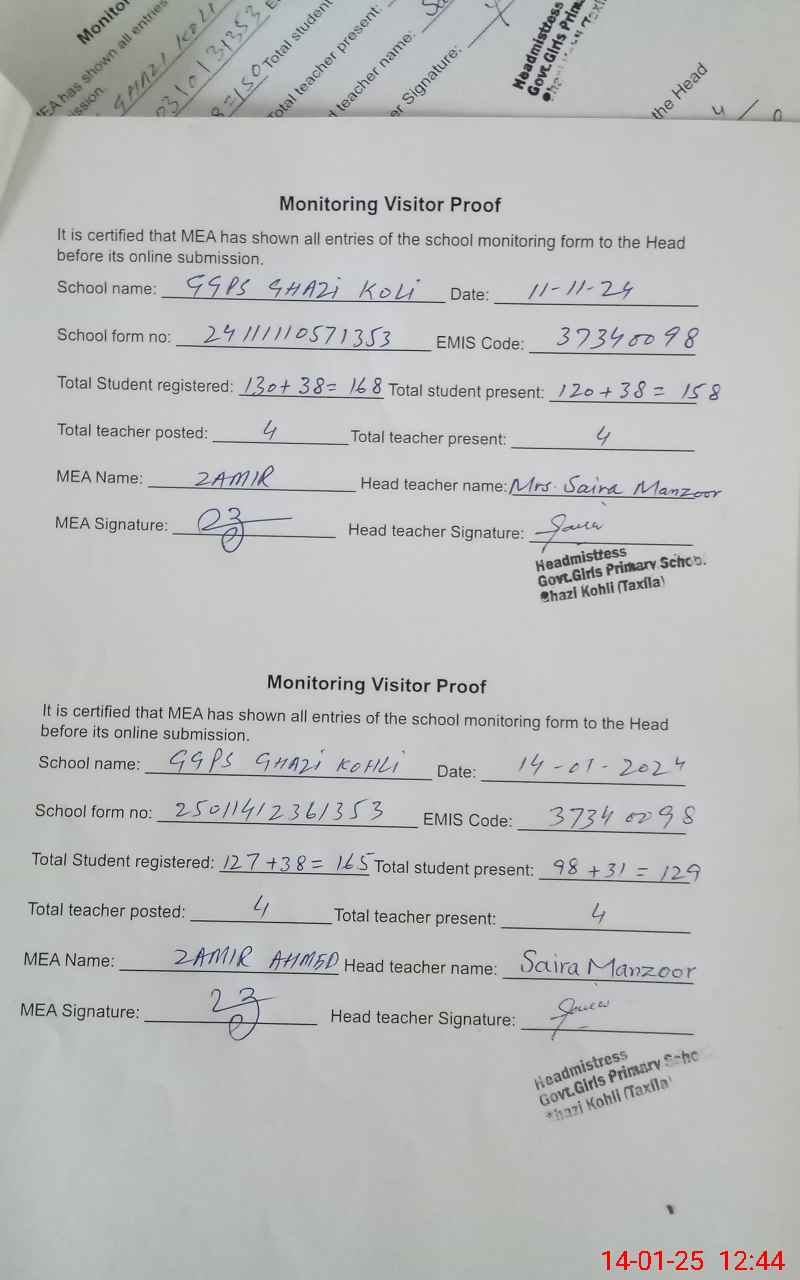 Monitor
EA has shown all entries
ssion.
GHAZI KOLI
Total student
Total teacher present:
teacher name:
er Signature:
Headmisttess
Govt.Girls Prim
the Head
Monitoring Visitor Proof
It is certified that MEA has shown all entries of the school monitoring form to the Head
before its online submission.
School name: GGPS GHAZI KOLI Date: 11-11-24
School form no: 24111110571353 EMIS Code: 37340098
Total Student registered: 130+ 38= 168 Total student present: 120 + 38 = 158
Total teacher posted: 4 Total teacher present: 4
MEA Name: ZAMIR Head teacher name: Mrs. Saira Manzoor
MEA Signature: Head teacher Signature: Saira
Headmisttess
Govt.Girls Primary School.
Ghazi Kohli (Taxila)
Monitoring Visitor Proof
It is certified that MEA has shown all entries of the school monitoring form to the Head
before its online submission.
School name: GGPS GHAZI KOHLI Date: 14-01-2024
School form no: 25011412361353 EMIS Code: 37340098
Total Student registered: 127+38= 165 Total student present: 98 +31 = 129
Total teacher posted: 4 Total teacher present: 4
MEA Name: ZAMIR AHMED Head teacher name: Saira Manzoor
MEA Signature: Head teacher Signature: Saira
Headmistress
Govt.Girls Primary Scho
Ghazi Kohli (Taxila)
14-01-25 12:44